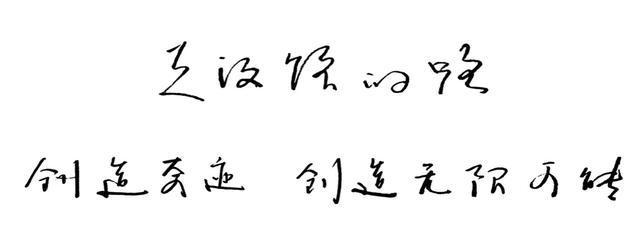 走没的路
创造奇迹 创造无限可能